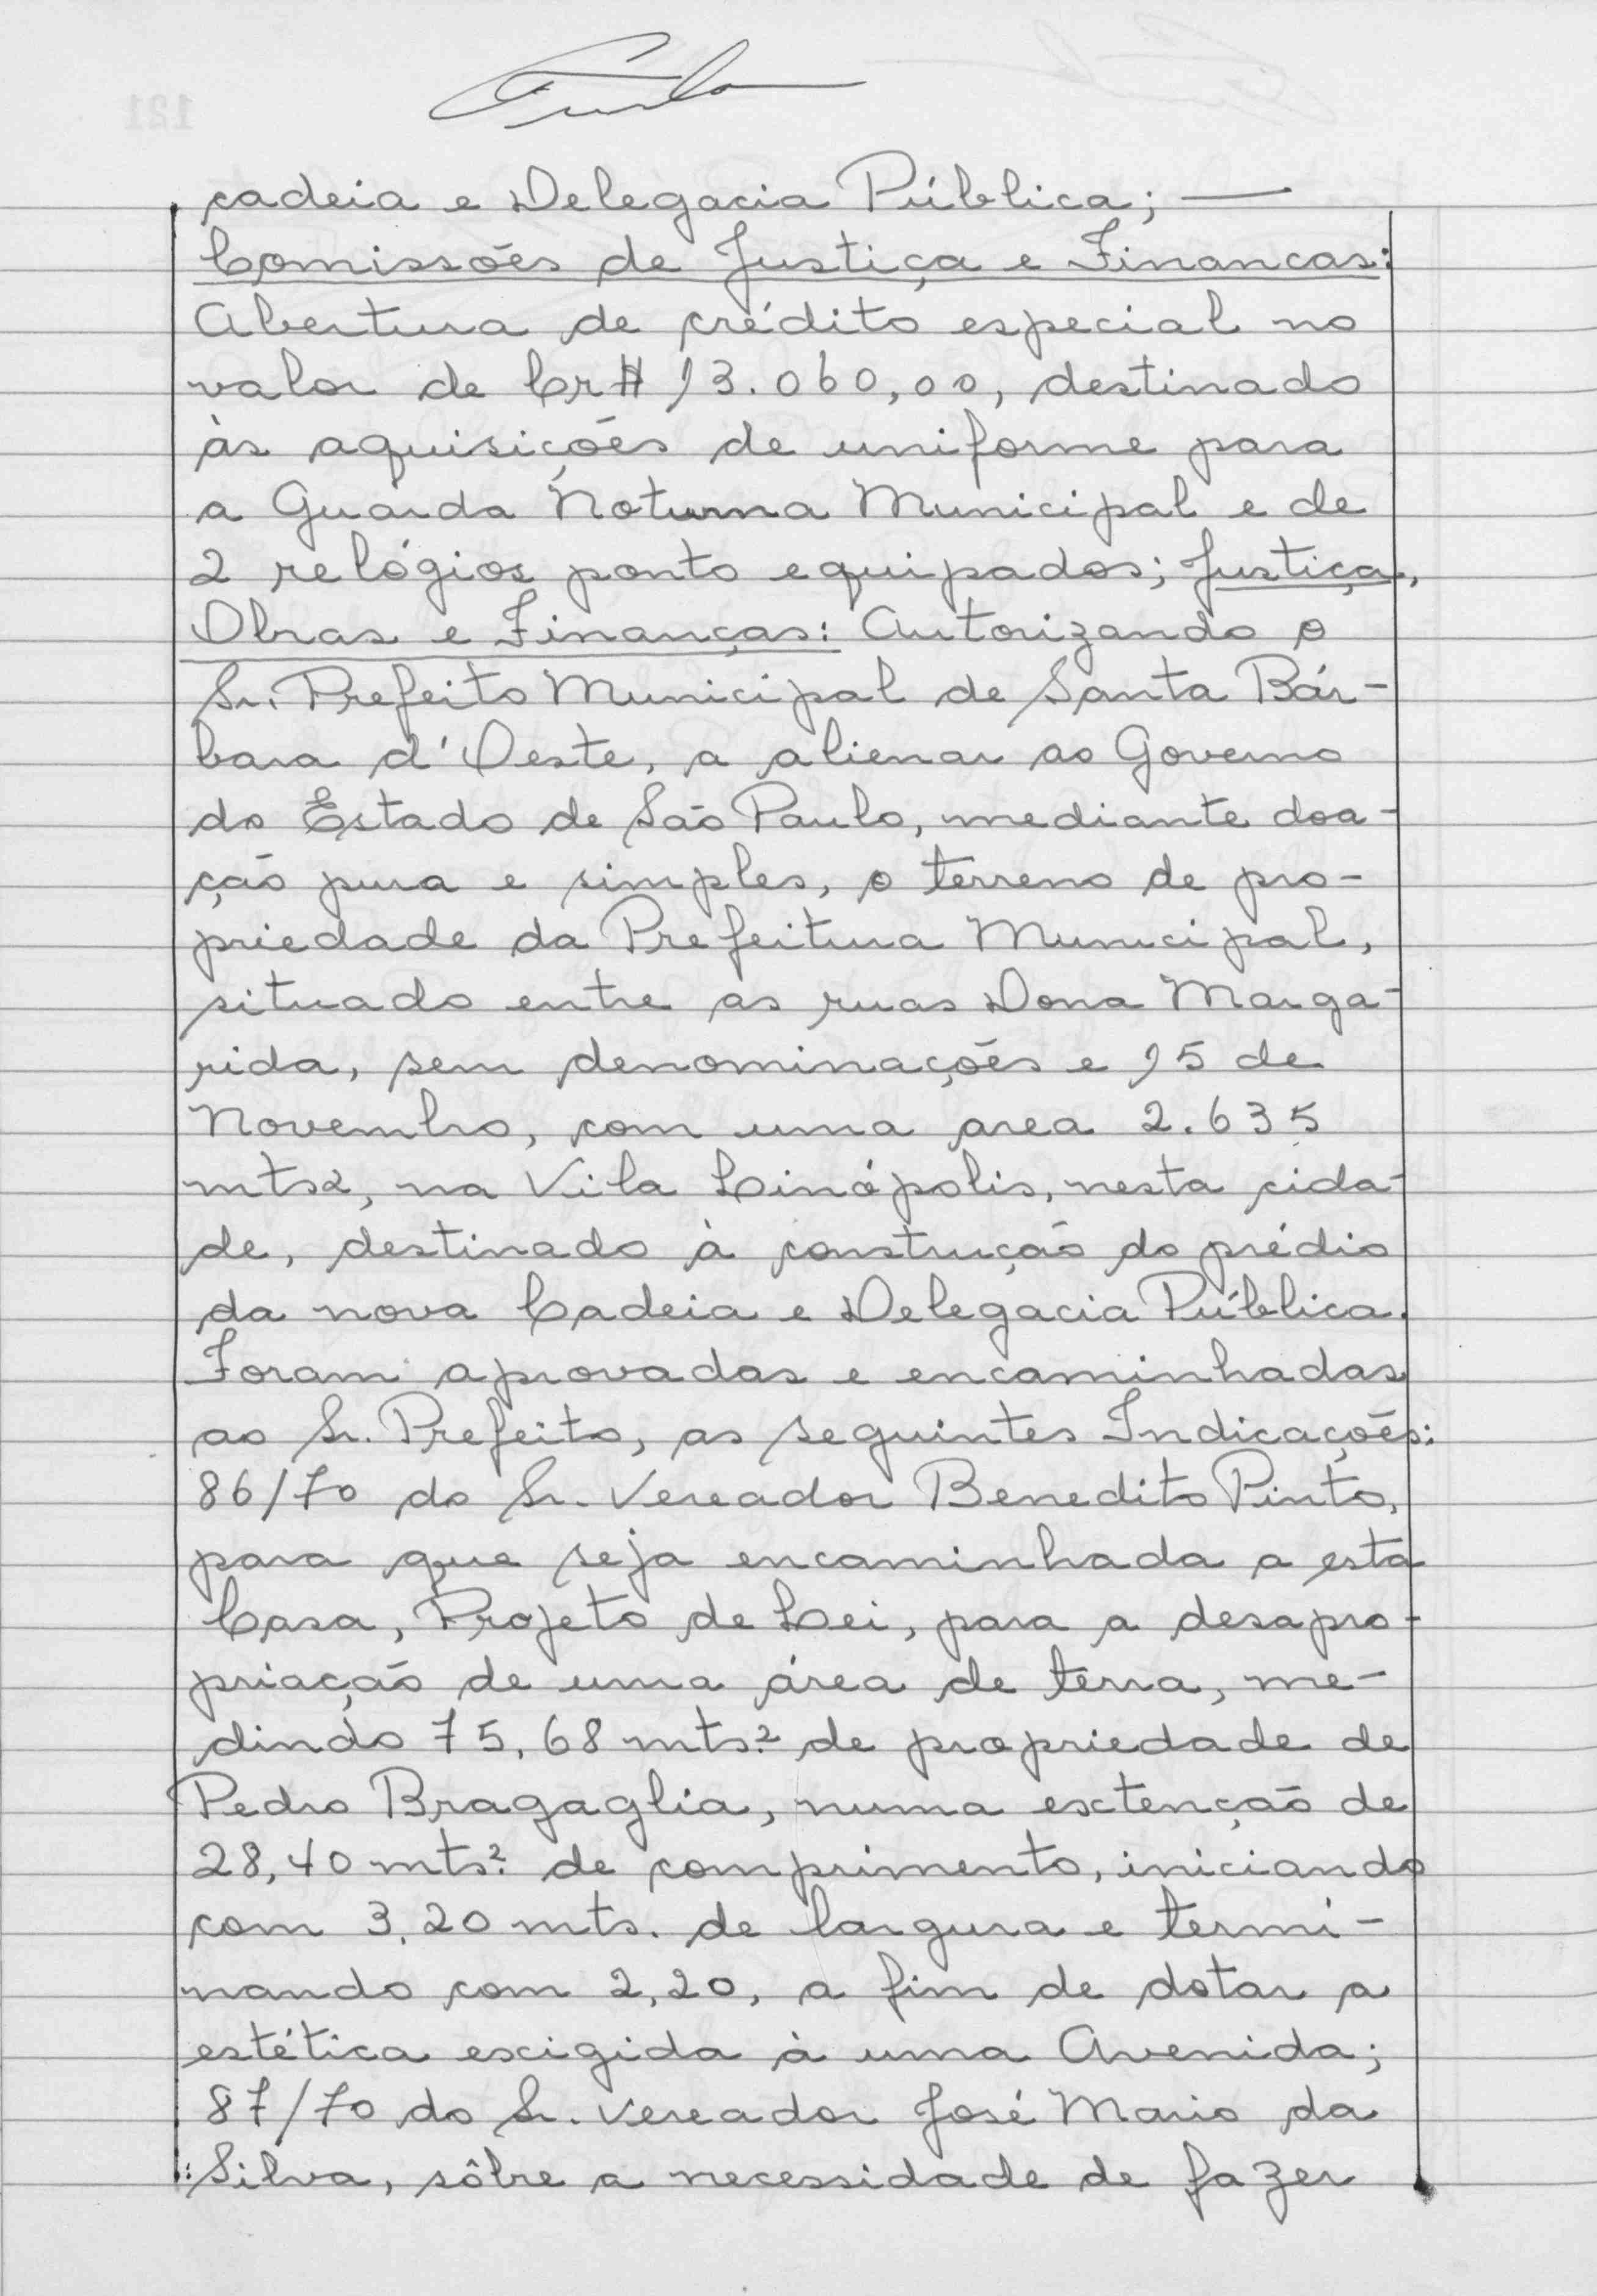 cadeia e Delegacia Pública; —
Comissões de Justiça e Financas:
Abertura de crédito especial no
valor de Cr$ 13.060,00, destinado
às aquisições de uniforme para
a Guarda Noturna Municipal e de
2 relógios ponto equipados; Justiça,
Obras e Finanças: Autorizando o
Sr. Prefeito Municipal de Santa Bár-
bara d'Oeste, a alienar ao Governo
do Estado de São Paulo, mediante doa-
ção pura e simples, o terreno de pro-
priedade da Prefeitura Municipal,
situado entre as ruas Dona Marga-
rida, sem denominações e 15 de
Novembro, com uma area 2.635
mts2, na Vila Linópolis, nesta cida-
de, destinado à construção do prédio
da nova Cadeia e Delegacia Pública.
Foram aprovadas e encaminhadas
ao Sr. Prefeito, as seguintes Indicações:
86/70 do Sr. Vereador Benedito Pinto,
para que seja encaminhada a esta
Casa, Projeto de Lei, para a desapro-
priação de uma área de terra, me-
dindo 75,68 mts.² de propriedade de
Pedro Bragaglia, numa extenção de
28,40 mts.² de comprimento, iniciando
com 3,20 mts. de largura e termi-
nando com 2,20, a fim de dotar a
estética exigida à uma Avenida;
87/70 do Sr. Vereador José Maria da
Silva, sôbre a necessidade de fazer